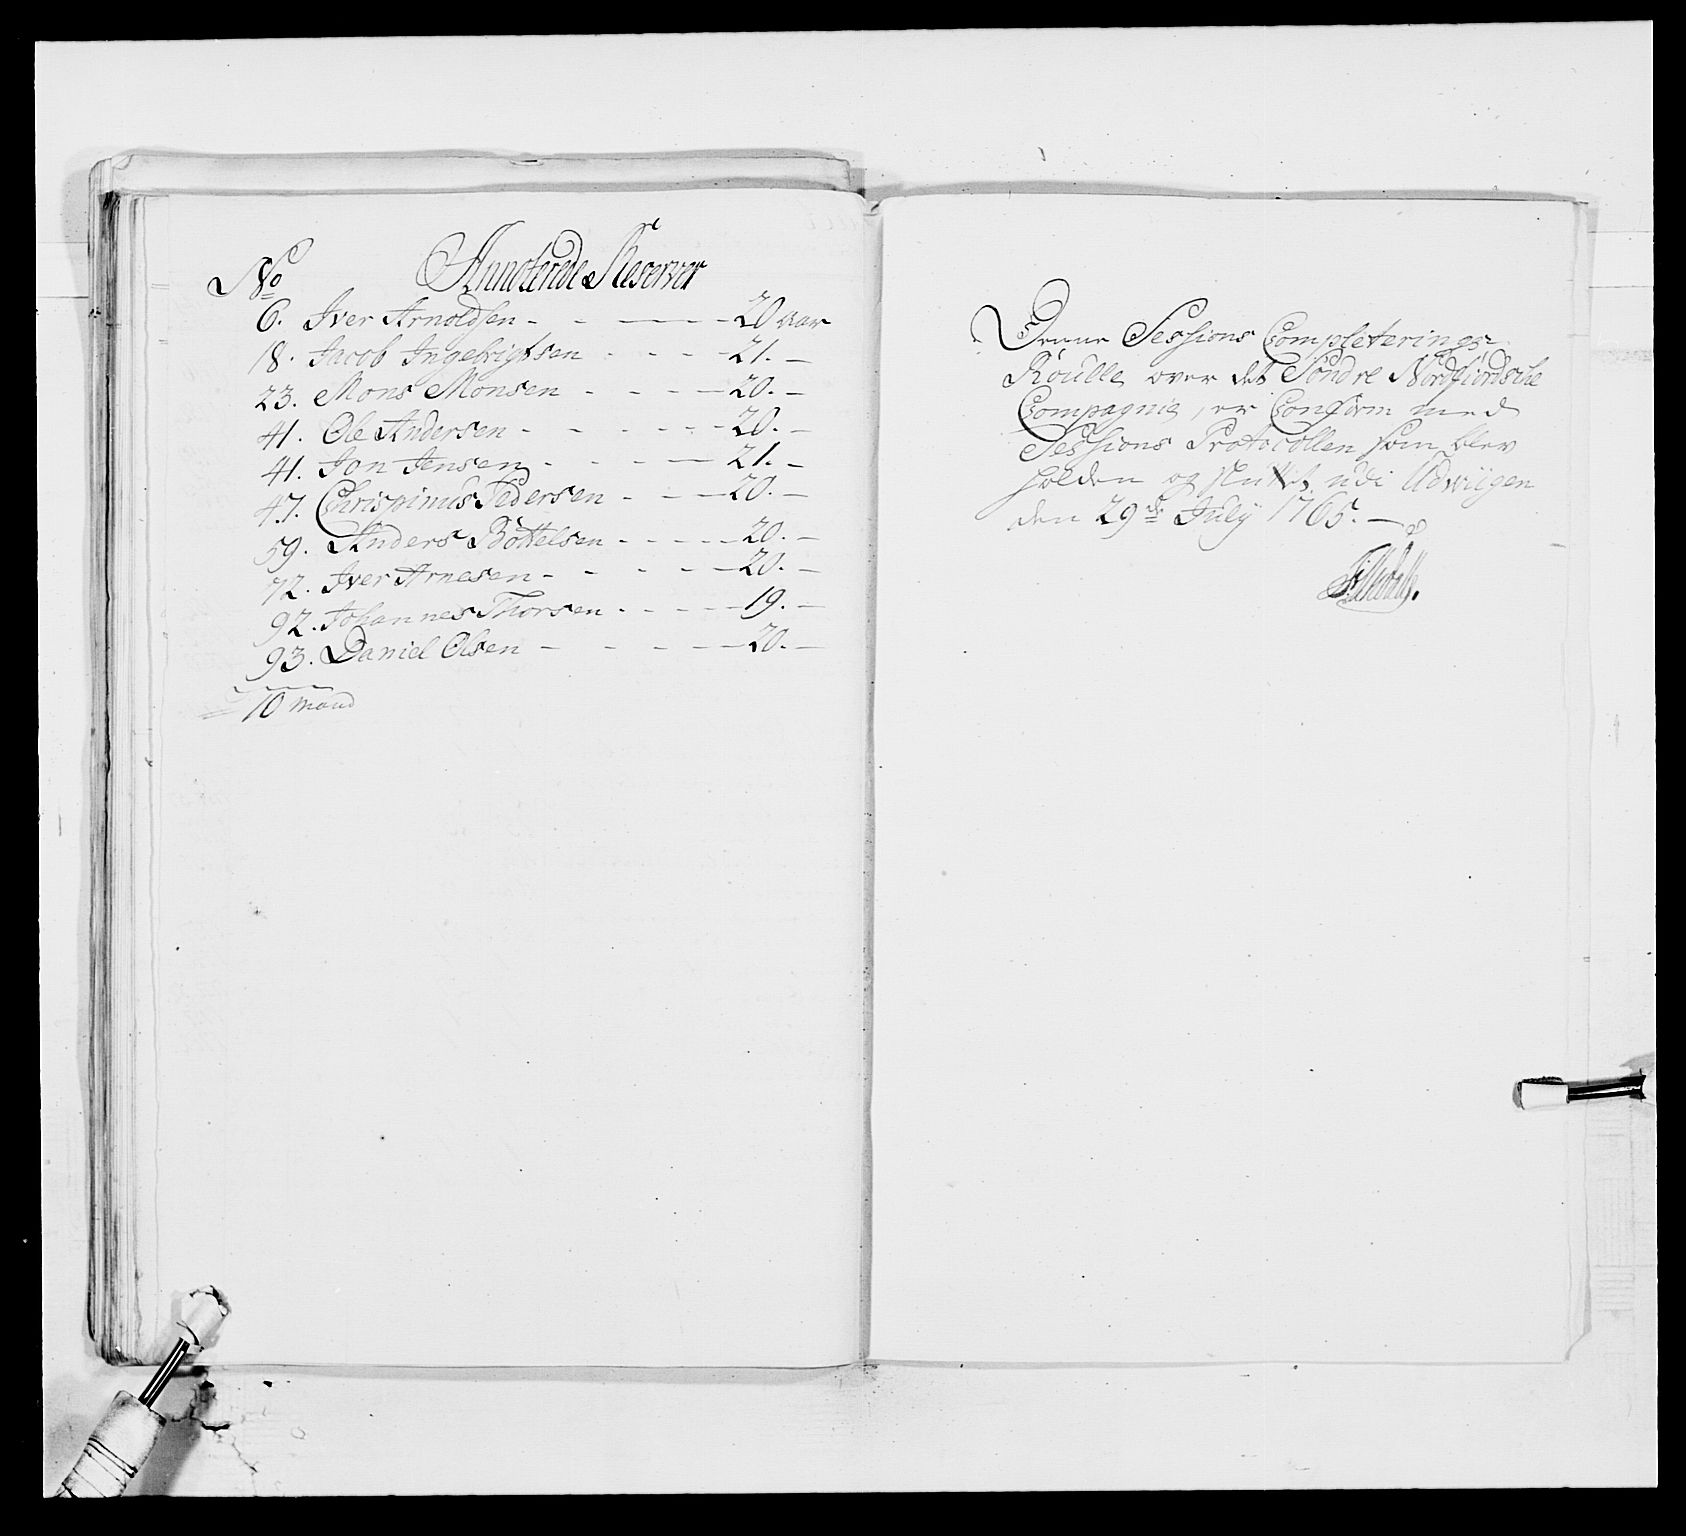 No Annoterede Reserver
6. Iver Arnoldsen - - - - 20 aar
18. Jacob Ingebrigtsen - - - 21. -
23. Mons Monsen - - - - 20. -
41. Ole Andersen - - - - 20. -
41. Jon Jensen - - - - 21. -
47. Chrispinus Pedersen - - - 20. -
59. Anders Bottelsen - - - - 20. -
72. Iver Arnesen - - - - 20. -
92. Johannes Thorsen - - - - 19. -
93. Daniel Olsen - - - - 20. -
10 mand
Denne Sessions Completerings
Roulle over det Söndre Nordfiordsche
Compagnie, er Conform med
Sessions Protocollen som blev
holden og sluttet udi Udwiigen
den 29de July 1765. -